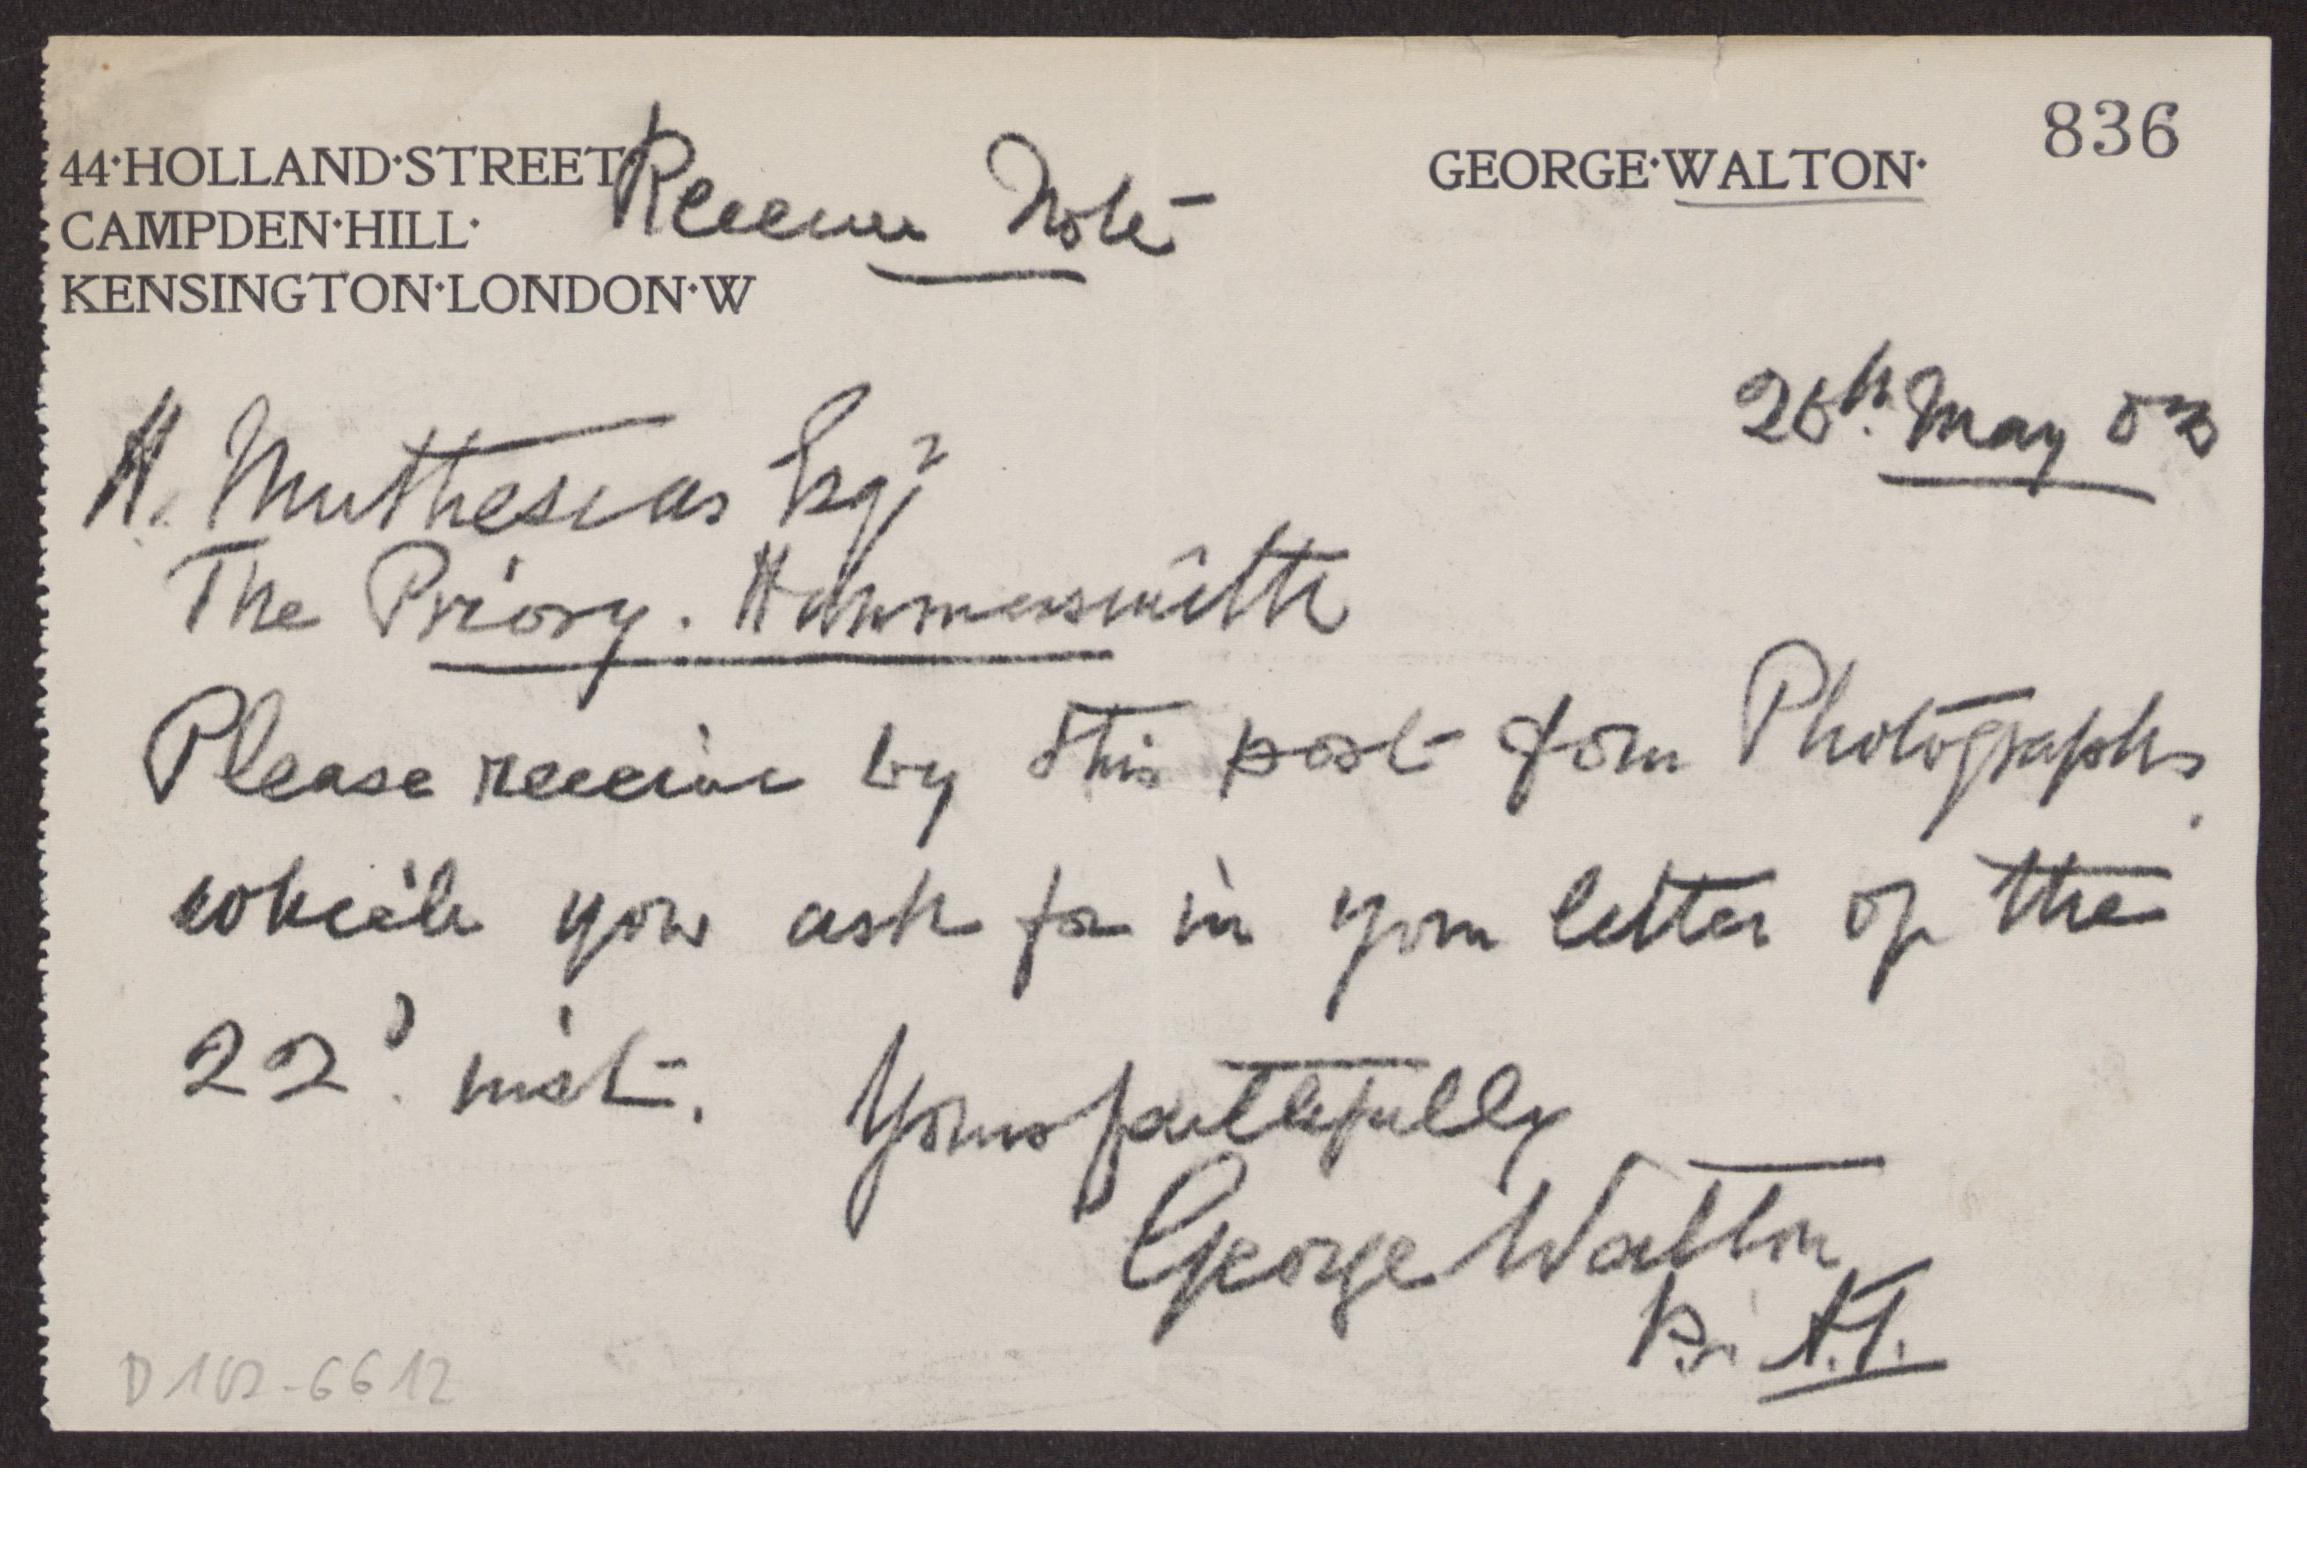 836
44·HOLLAND·STREET
CAMPDEN·HILL·
KENSINGTON·LONDON·W
GEORGE·WALTON·
Receive Note
May 03
H. Muthesius Esqr
The Priory. Hammersmith
Please receive by this post four Photographs
which you ask for in your letter of the
22d. inst. Yours faithfully
George Walton
D 102-6612